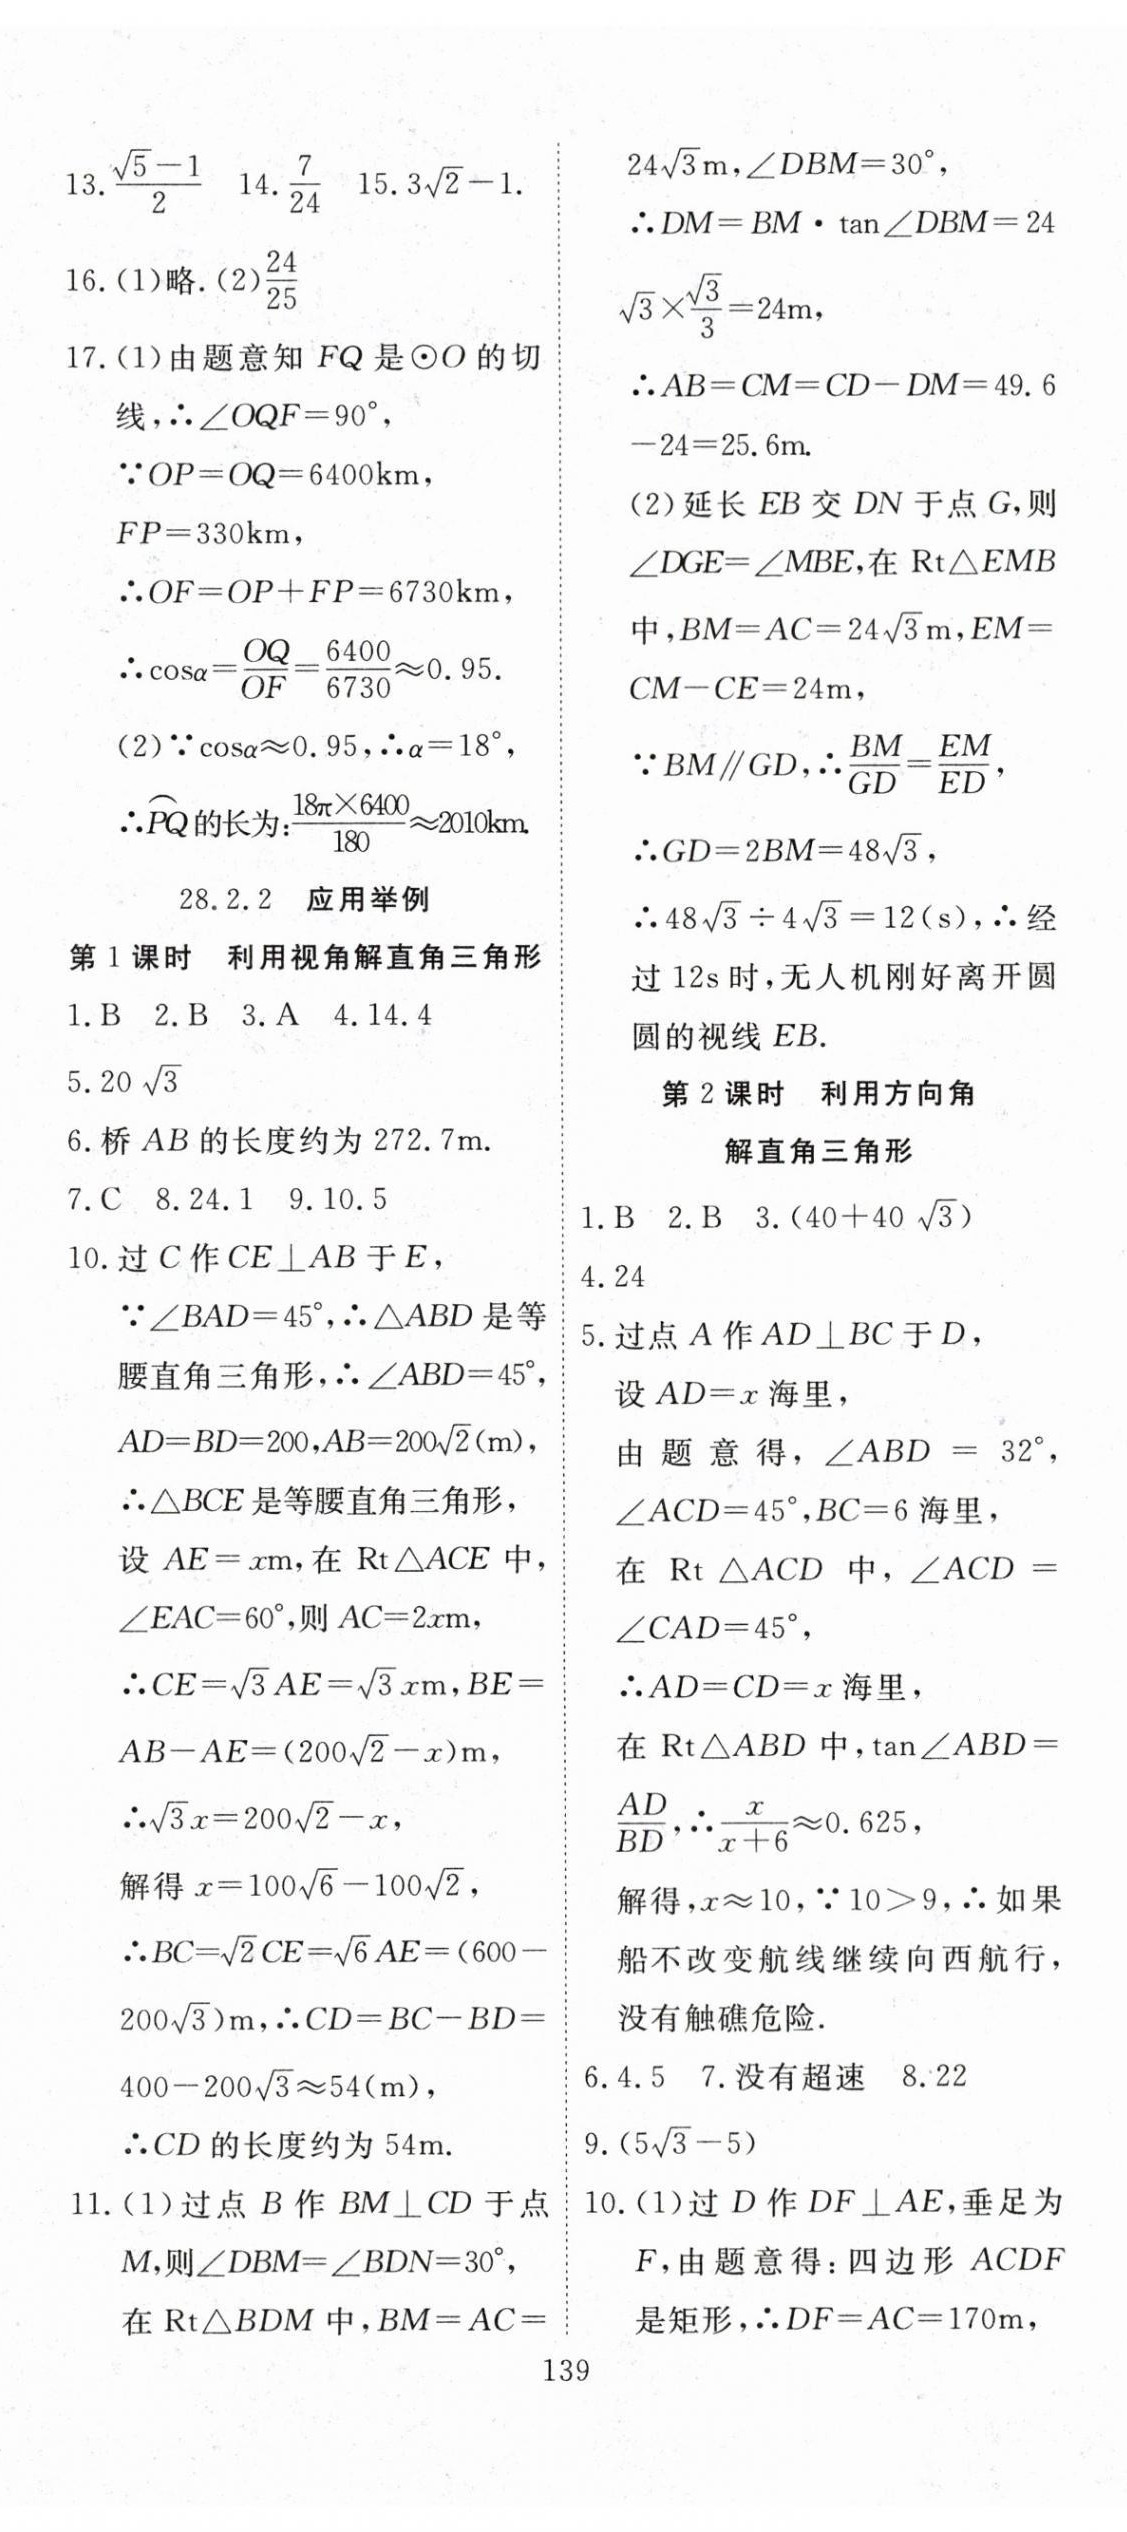 13. (√5−1)/2  14. 7/24  15. 3√2−1.
16. (1)略. (2) 24/25
17. (1)由题意知 FQ 是⊙O 的切
线,∴∠OQF=90°,
∵OP=OQ=6400km,
FP=330km,
∴OF=OP+FP=6730km,
∴cosα=OQ/OF=6400/6730≈0.95.
(2)∵cosα≈0.95,∴α=18°,
∴P͡Q的长为:(18π×6400)/180≈2010km.
28.2.2 应用举例
第 1 课时 利用视角解直角三角形
1. B  2. B  3. A  4. 14.4
5. 20√3
6. 桥 AB 的长度约为 272.7m.
7. C  8. 24.1  9. 10.5
10. 过 C 作 CE⊥AB 于 E,
∵∠BAD=45°,∴△ABD 是等
腰直角三角形,∴∠ABD=45°,
AD=BD=200,AB=200√2(m),
∴△BCE 是等腰直角三角形,
设 AE=xm,在 Rt△ACE 中,
∠EAC=60°,则 AC=2xm,
∴CE=√3AE=√3xm,BE=
AB−AE=(200√2−x)m,
∴√3x=200√2−x,
解得 x=100√6−100√2,
∴BC=√2CE=√6AE=(600−
200√3)m,∴CD=BC−BD=
400−200√3≈54(m),
∴CD 的长度约为 54m.
11. (1)过点 B 作 BM⊥CD 于点
M,则∠DBM=∠BDN=30°,
在 Rt△BDM 中,BM=AC=
24√3m,∠DBM=30°,
∴DM=BM·tan∠DBM=24
√3×√3/3=24m,
∴AB=CM=CD−DM=49.6
−24=25.6m.
(2)延长 EB 交 DN 于点 G,则
∠DGE=∠MBE,在 Rt△EMB
中,BM=AC=24√3m,EM=
CM−CE=24m,
∵BM∥GD,∴BM/GD=EM/ED,
∴GD=2BM=48√3,
∴48√3÷4√3=12(s),∴经
过 12s 时,无人机刚好离开圆
圆的视线 EB.
第 2 课时 利用方向角
解直角三角形
1. B  2. B  3. (40+40√3)
4. 24
5. 过点 A 作 AD⊥BC 于 D,
设 AD=x 海里,
由题意得,∠ABD=32°,
∠ACD=45°,BC=6 海里,
在 Rt△ACD 中,∠ACD=
∠CAD=45°,
∴AD=CD=x 海里,
在 Rt△ABD 中,tan∠ABD=
AD/BD,∴x/(x+6)≈0.625,
解得,x≈10,∵10>9,∴如果
船不改变航线继续向西航行,
没有触礁危险.
6. 4.5  7. 没有超速  8. 22
9. (5√3−5)
10. (1)过 D 作 DF⊥AE,垂足为
F,由题意得:四边形 ACDF
是矩形,∴DF=AC=170m,
139